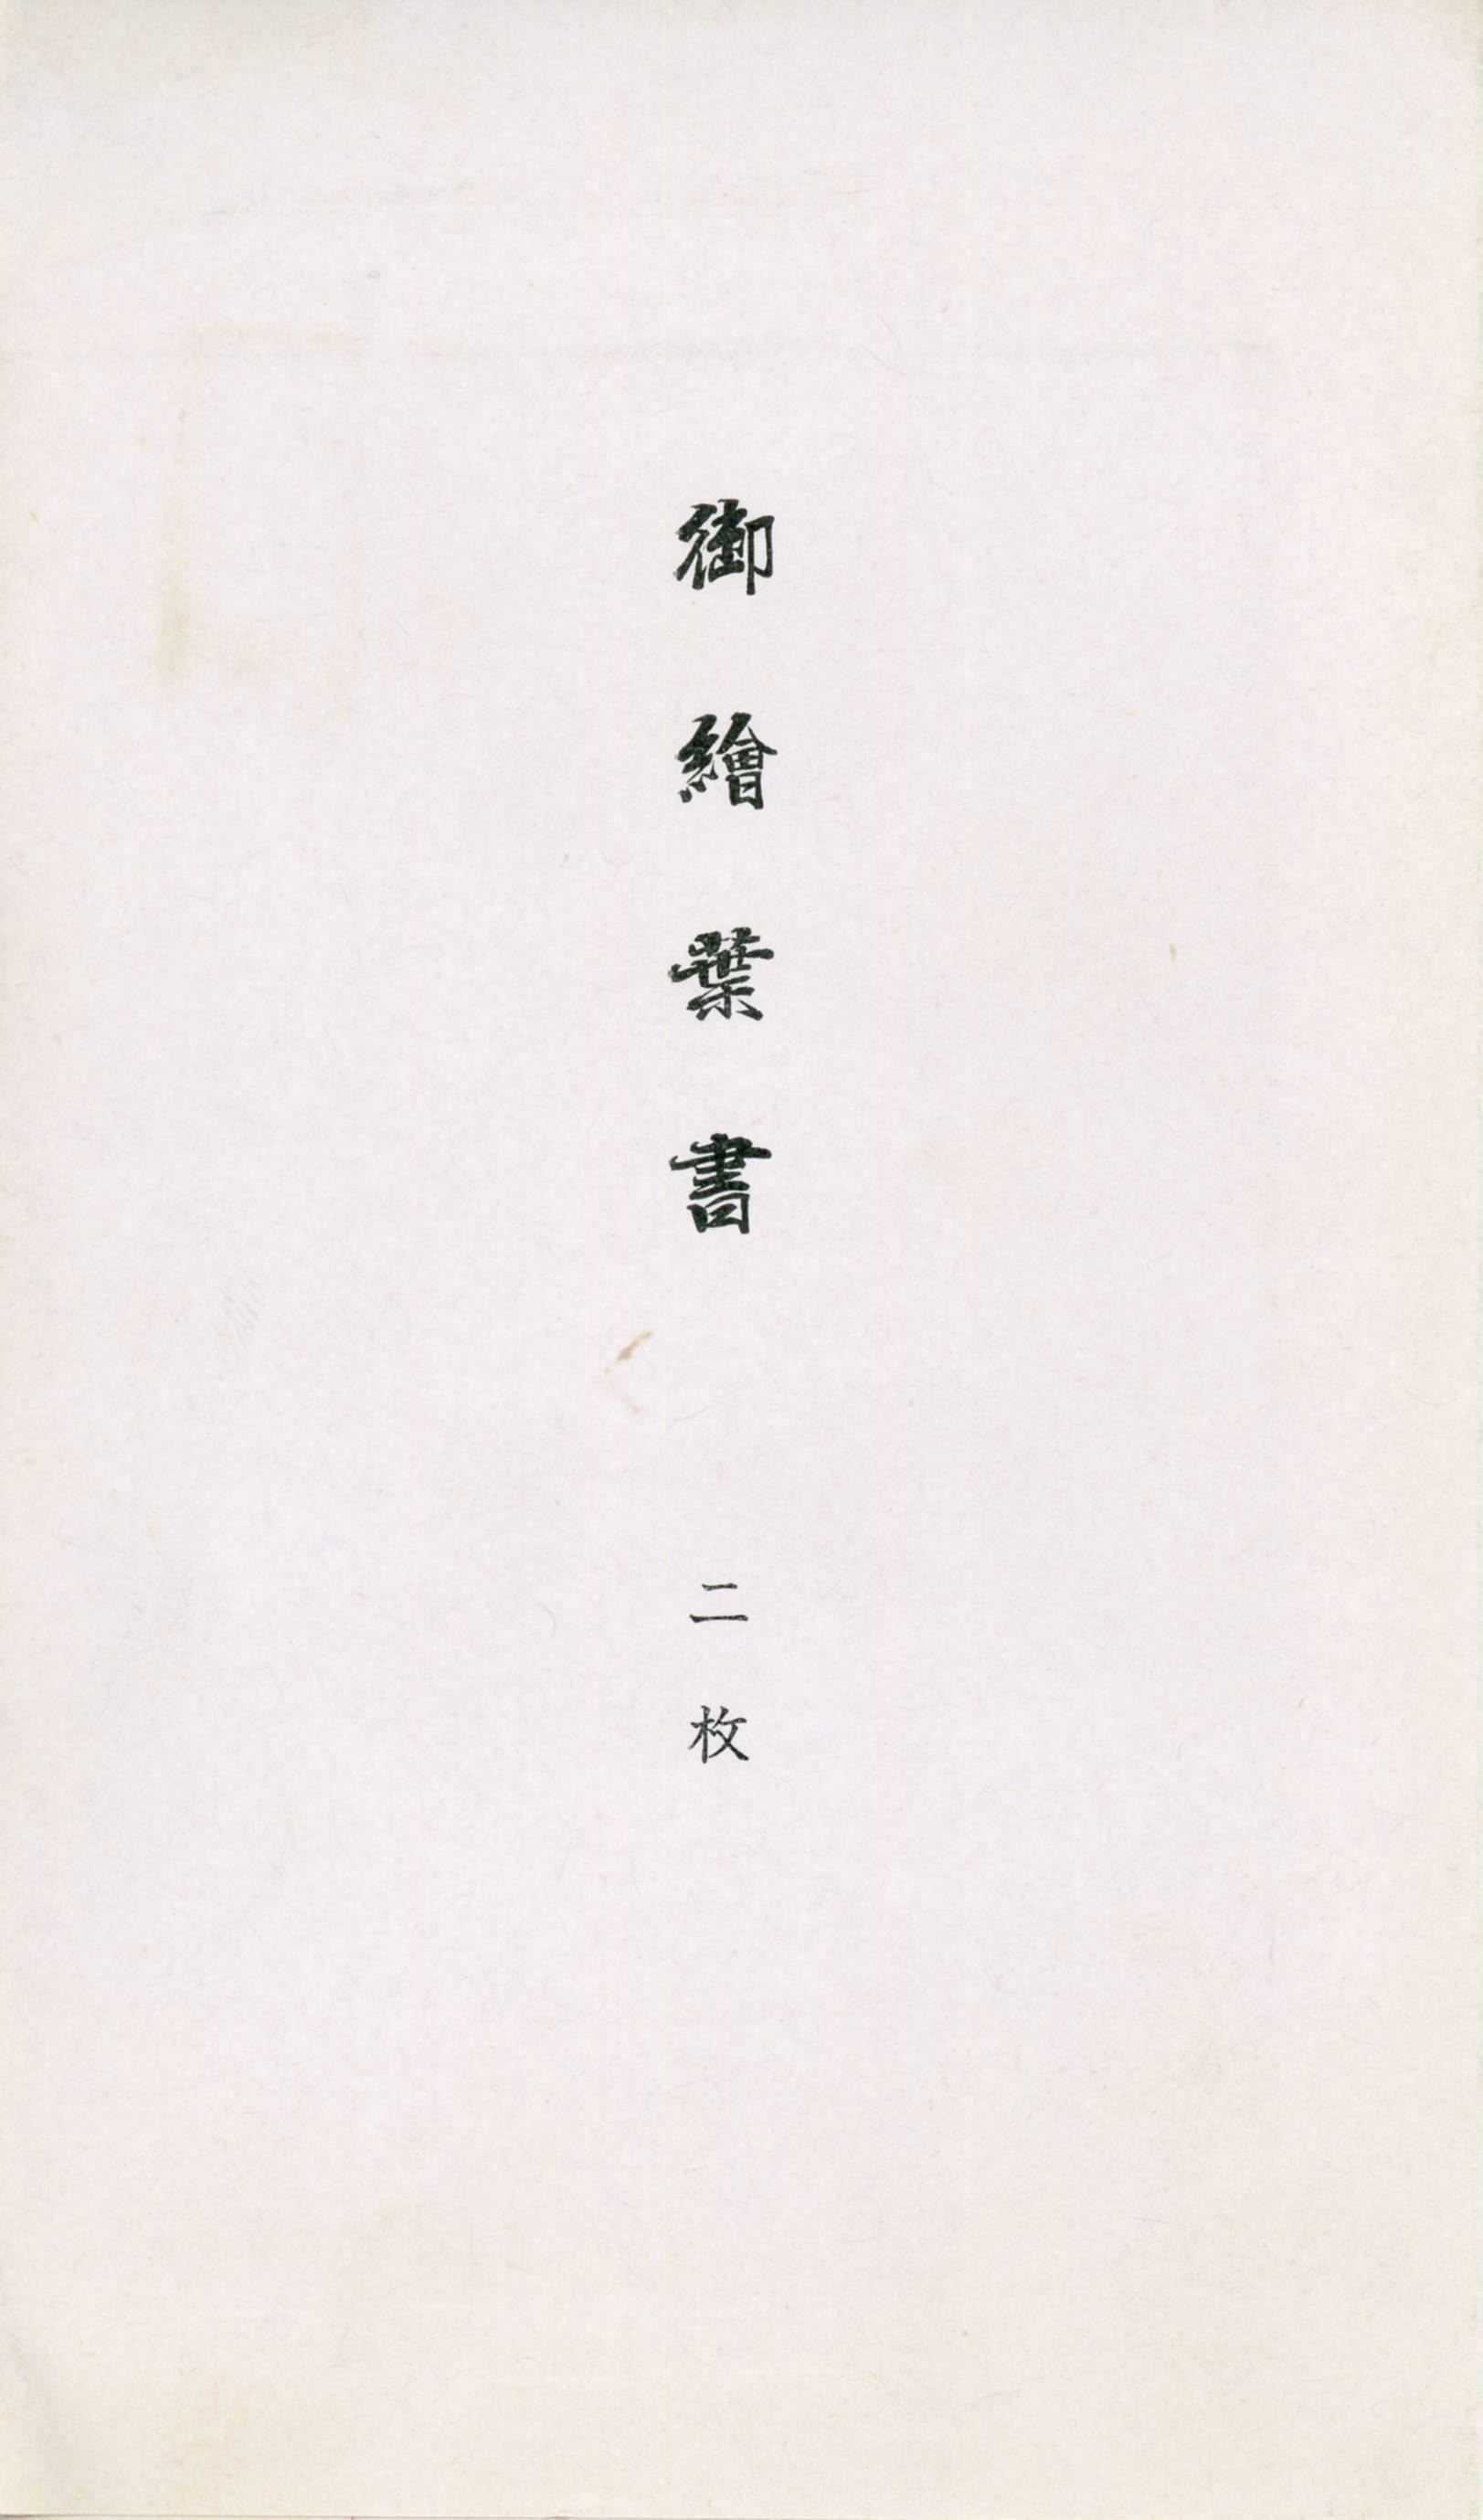 御繪葉書 二枚